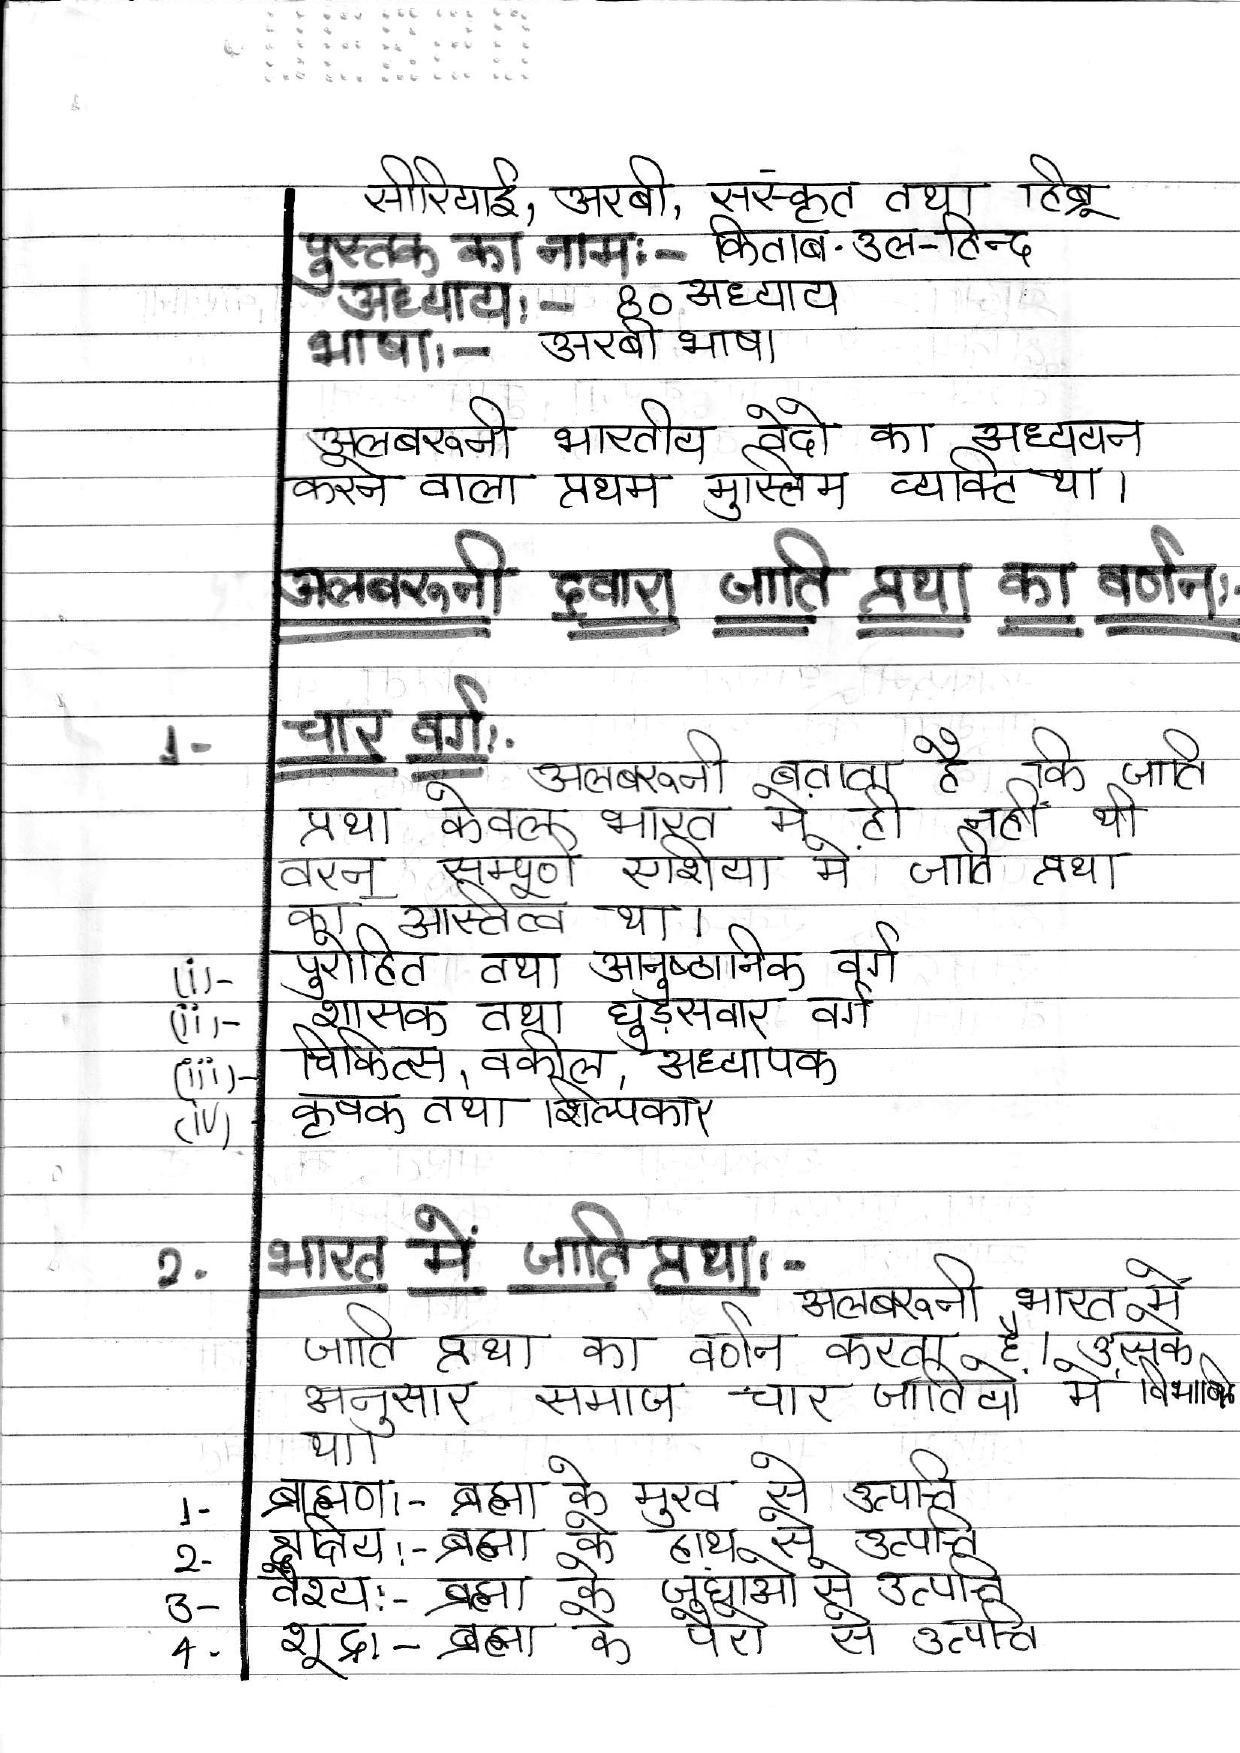 सीरियाई, अरबी, संस्कृत तथा हिब्रू
पुस्तक का नामः- किताब-उल-हिन्द
अध्यायः- ८० अध्याय
भाषाः- अरबी भाषा
अलबरूनी भारतीय वेदो का अध्ययन
करने वाला प्रथम मुस्लिम व्यक्ति था।
अलबरूनी द्वारा जाति प्रथा का वर्णनः-
1- चार वर्गः-
अलबरूनी बताता है कि जाति
प्रथा केवल भारत में ही नहीं थी
वरन् सम्पूर्ण एशिया में जाति प्रथा
का अस्तित्व था।
(i)- पुरोहित तथा आनुष्ठानिक वर्ग
(ii)- शासक तथा घुड़सवार वर्ग
(iii)- चिकित्स, वकील, अध्यापक
(iv) कृषक तथा शिल्पकार
2. भारत में जाति प्रथाः-
अलबरूनी भारत में
जाति प्रथा का वर्णन करता है। उसके
अनुसार समाज चार जातियो में विभाजित
था।
1- ब्राह्मणः- ब्रह्मा के मुख से उत्पत्ति
2- क्षत्रियः- ब्रह्मा के हाथ से उत्पत्ति
3- वैश्यः- ब्रह्मा के जंघाओ से उत्पत्ति
4- शूद्रः- ब्रह्मा के पैरो से उत्पत्ति